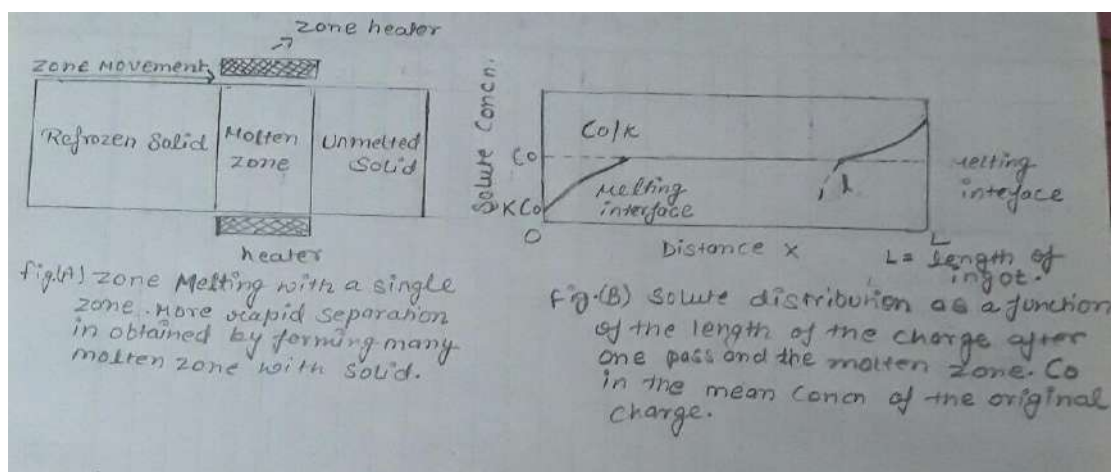 zone heater
zone Movement
Refrozen Solid
Molten
zone
Unmelted
Solid
heater
fig.(A) zone Melting with a single
zone. More rapid separation
in obtained by forming many
molten zone with solid.
Solute Concn.
Co/K
Co
KCo
O
Melting
interface
l
Melting
inteface
Distance X
L
L = length of
ingot.
Fig.(B) Solute distribution as a function
of the length of the charge after
one pass and the molten zone. Co
in the mean Concn of the original
charge.